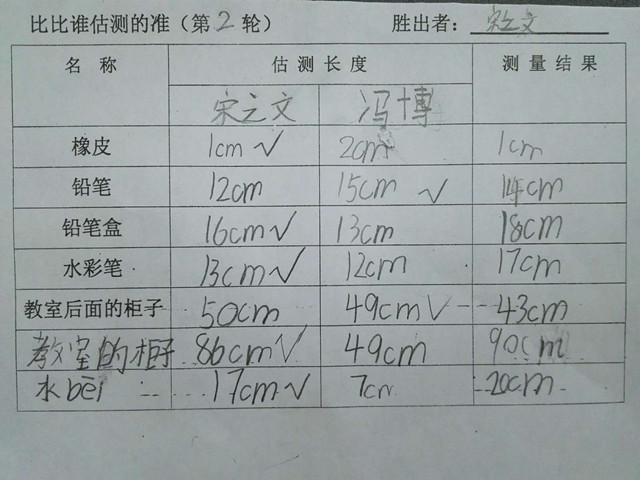 比比谁估测的准（第2轮） 胜出者：宋之文
名 称 估 测 长 度 测 量 结 果
宋之文 冯博
橡皮 1cm √ 2cm 1cm
铅笔 12cm 15cm √ 14cm
铅笔盒 16cm √ 13cm 18cm
水彩笔 13cm √ 12cm 17cm
教室后面的柜子 50cm 49cm √ 43cm
教室的柜子 86cm √ 49cm 90cm
水bēi 17cm √ 7cm 20cm